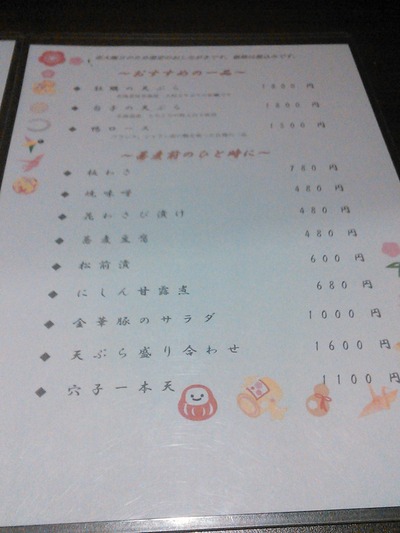 ～おすすめの一品～
◆ 牡蠣の天ぷら 1880 円
◆ 白子の天ぷら 1600 円
◆ 鴨ロース 1500 円
～蕎麦前のひと時に～
◆ 板わさ 780 円
◆ 焼味噌 480 円
◆ 花わさび漬け 480 円
◆ 蕎麦豆腐 480 円
◆ 松前漬 600 円
◆ にしん甘露煮 680 円
◆ 金華豚のサラダ 1000 円
◆ 天ぷら盛り合わせ 1600 円
◆ 穴子一本天 1100 円